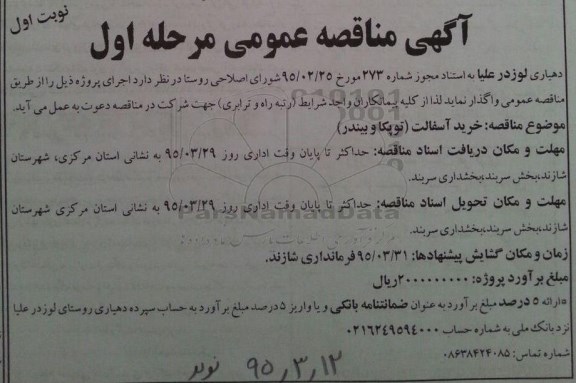 نوبت اول
آگهی مناقصه عمومی مرحله اول
دهیاری لوزدر علیا به استناد مجوز شماره ۲۷۳ مورخ ۹۵/۰۲/۲۵ شورای اصلاحی روستا در نظر دارد اجرای پروژه ذیل را از طریق
مناقصه عمومی واگذار نماید لذا از کلیه پیمانکاران واجد شرایط (رتبه راه و ترابری) جهت شرکت در مناقصه دعوت به عمل می آید.
موضوع مناقصه: خرید آسفالت (توپکا و بیندر)
مهلت و مکان دریافت اسناد مناقصه: حداکثر تا پایان وقت اداری روز ۹۵/۰۳/۲۹ به نشانی استان مرکزی، شهرستان
شازند،بخش سربند،بخشداری سربند.
مهلت و مکان تحویل اسناد مناقصه: حداکثر تا پایان وقت اداری روز ۹۵/۰۳/۲۹ به نشانی استان مرکزی شهرستان
شازند،بخش سربند،بخشداری سربند.
زمان و مکان گشایش پیشنهادها: ۹۵/۰۳/۳۱ فرمانداری شازند.
مبلغ برآورد پروژه: ۲۰۰۰۰۰۰۰۰۰ریال
*ارائه ۵ درصد مبلغ برآورد به عنوان ضمانتنامه بانکی و یا واریز ۵درصد مبلغ برآورد به حساب سپرده دهیاری روستای لوزدر علیا
نزد بانک ملی به شماره حساب ۰۲۱۶۲۴۹۵۹۴۰۰۰
شماره تماس: ۰۸۶۳۸۴۲۴۰۸۵
۹۵٫۳٫۱۲
ParsNamadData